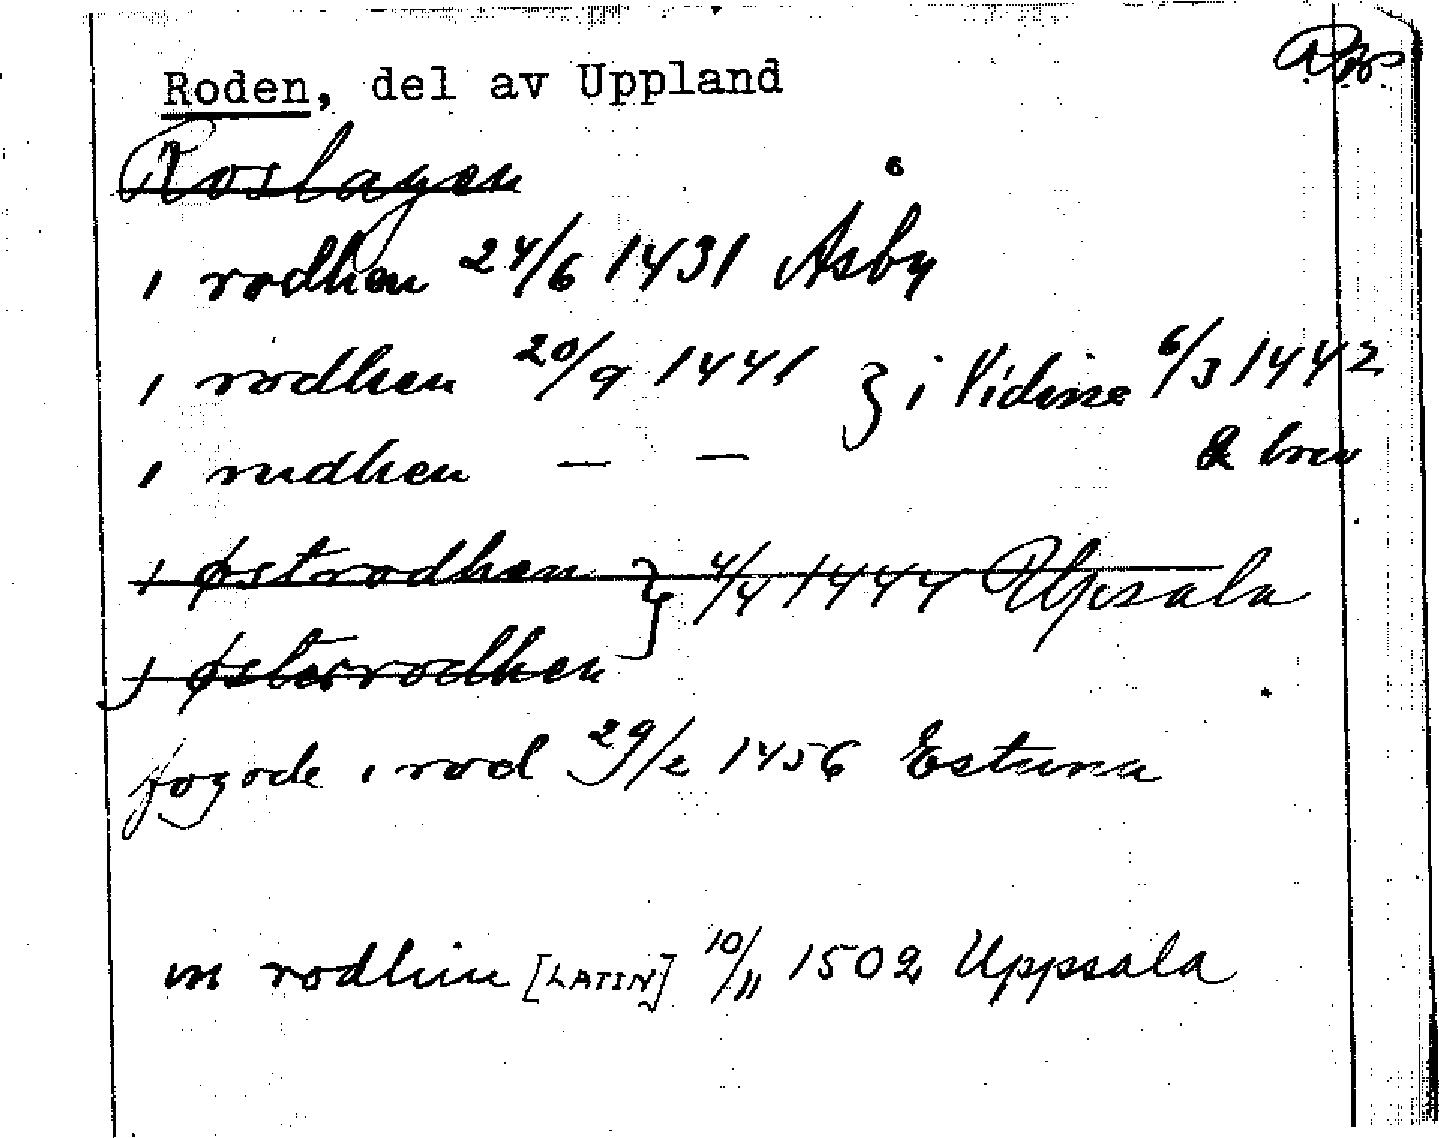 Roden, del av Uppland
Roslagen
i rodhen 24/6 1431 Åsby
i rodhen 20/9 1441 } i Vidisse 6/3 1442
i rudhen — — & brev
i østrodhen } 4/4 1444 Upsala
i østerrodhen
fogode i rod 29/2 1456 Estuna
in rodhin [LATIN] 10/11 1502 Uppsala